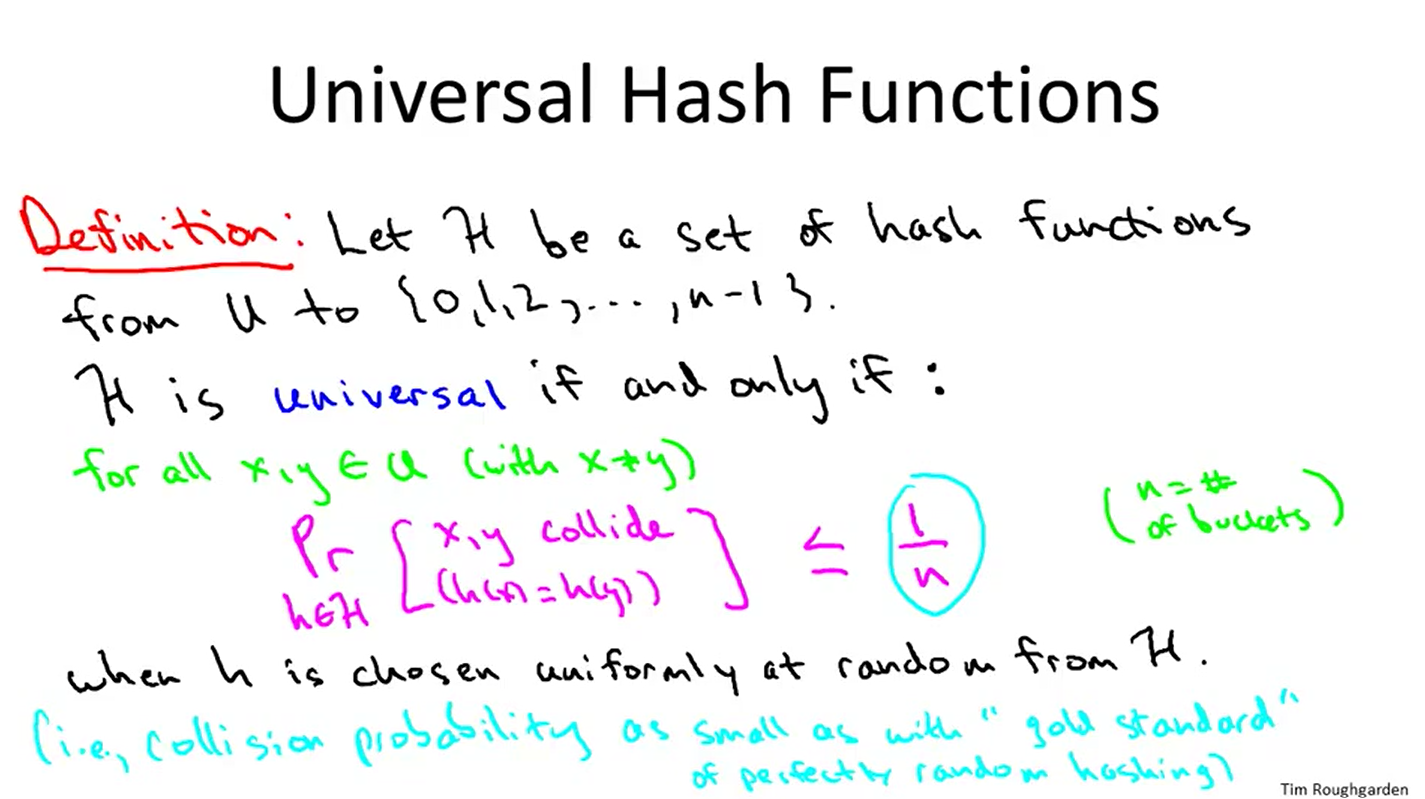 Universal Hash Functions
Definition: Let H be a set of hash functions
from U to {0,1,2,...,n-1}.
H is universal if and only if:
for all x,y ∈ U (with x≠y)
Pr h∈H [x,y collide (h(x)=h(y))] ≤ 1/n
(n = # of buckets)
when h is chosen uniformly at random from H.
(i.e., collision probability as small as with "gold standard"
of perfectly random hashing)
Tim Roughgarden